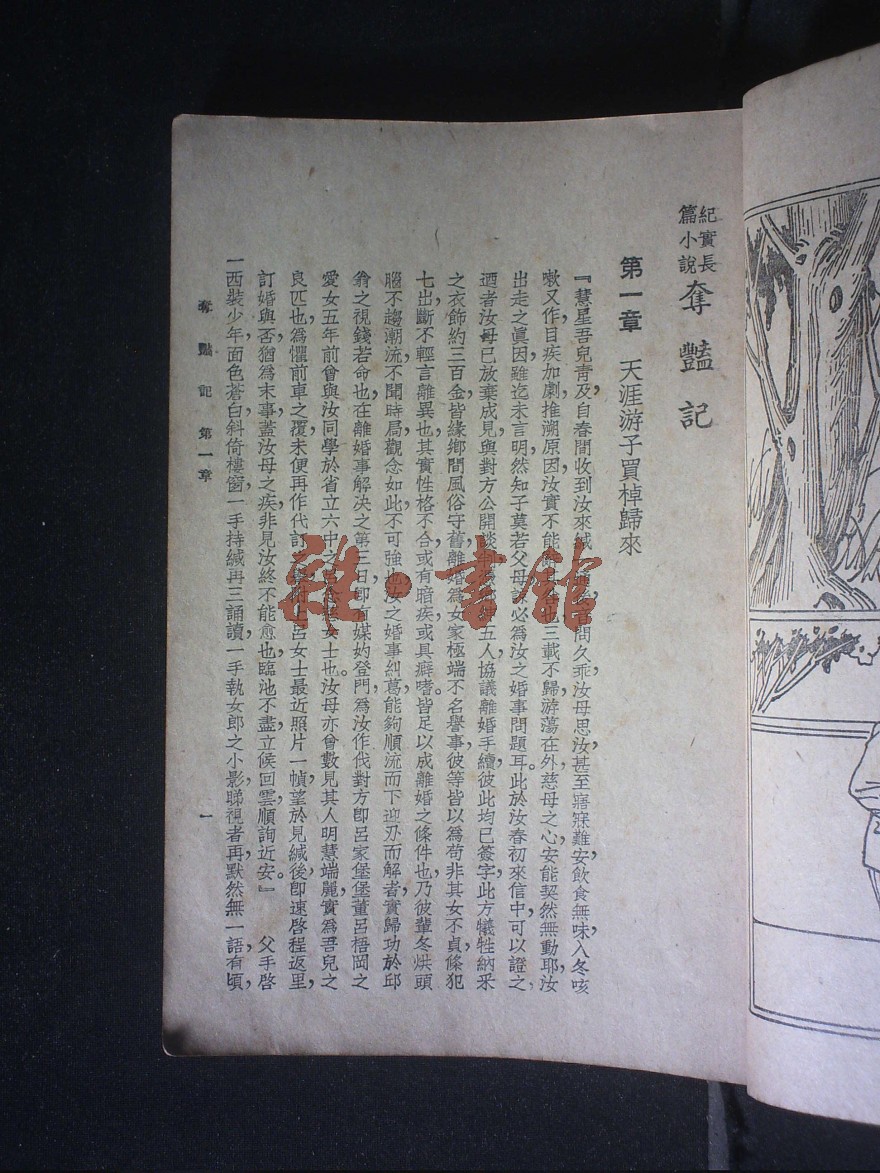 紀實長篇小說 奪豔記
第一章 天涯游子買棹歸來
『慧星吾兒青及自春間收到汝來緘，音問久乖汝母思汝甚至寤寐難安，飲食無味，入冬咳
嗽又作目疾加劇推溯原因汝實不能也三載不歸游蕩在外慈母之心安能恝然無動耶，汝
出走之眞因雖迄未言明然知子莫若父母諒必為汝之婚事問題耳。此於汝春初來信中可以證之，
迺者汝母已放棄成見與對方公開談五人協議離婚手續彼此均已簽字此方犧牲納采
之衣飾約三百金皆緣鄉間風俗守舊離婚爲女家極端不名譽事彼等皆以爲苟非其女不貞條犯
七出，斷不輕言離異也其實性格不合，或有暗疾或具癖嗜。皆足以成離婚之條件也乃彼輩冬烘頭
腦不趨潮流不聞時局觀念如此不可強也，汝之婚事糾葛能夠順流而下迎刃而解者實歸功於邱
翁之視錢若命也在離婚事解決之第三日卽有媒妁登門，爲汝作伐對方卽呂家堡堡董呂梧岡之
愛女五年前曾與汝同學於省立六中之女士也。汝母亦曾數見其人明慧端麗，實爲吾兒之
良匹也爲懼前車之覆，未便再作代訂，附上呂女士最近照片一幀，望於見緘後卽速啓程返里，
訂婚與否，猶爲末事蓋汝母之疾，非見汝終不能愈也，臨池不盡，立候回雲，順詢近安。』 父手啓
一西裝少年，面色蒼白，斜倚樓窗，一手持緘，再三誦讀，一手執女郎之小影，睇視者再，默然無一語，有頃，
奪豔記 第一章
一
雜·書館